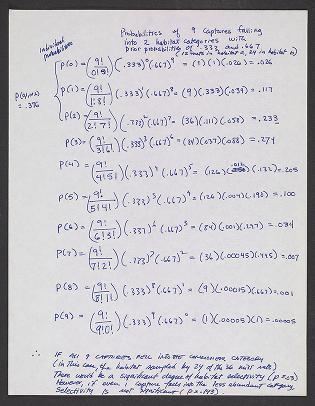 Probabilities of 9 captures falling
into 2 habitat categories with
prior probabilities of .333 and .667
(12 units in habitat a, 24 in habitat b)
Individual
probabilities
P(0) = (9!/0!9!) (.333)⁰ (.667)⁹ = (1)(1)(.026) = .026
P(1) = (9!/1!8!) (.333)¹ (.667)⁸ = (9)(.333)(.039) = .117
P(2) = (9!/2!7!) (.333)² (.667)⁷ = (36)(.111)(.058) = .233
= .376
P(3) = (9!/3!6!) (.333)³ (.667)⁶ = (84)(.037)(.088) = .274
P(4) = (9!/4!5!) (.333)⁴ (.667)⁵ = (126)(.012)(.132) = .205
P(5) = (9!/5!4!) (.333)⁵ (.667)⁴ = (126)(.004)(.198) = .100
P(6) = (9!/6!3!) (.333)⁶ (.667)³ = (84)(.001)(.297) = .034
P(7) = (9!/7!2!) (.333)⁷ (.667)² = (36)(.00045)(.445) = .007
P(8) = (9!/8!1!) (.333)⁸ (.667)¹ = (9)(.00015)(.667) = .001
P(9) = (9!/9!0!) (.333)⁹ (.667)⁰ = (1)(.00005)(1) = .00005
∴ IF ALL 9 CAPTURES FELL INTO THE CATEGORY
(in this case, the habitat sampled by 24 of the 36 unit )
There would be a significant degree of habitat selectivity (p=.03)
However, if even 1 capture falls into the less abundant category,
selectivity is not significant (p=.143)